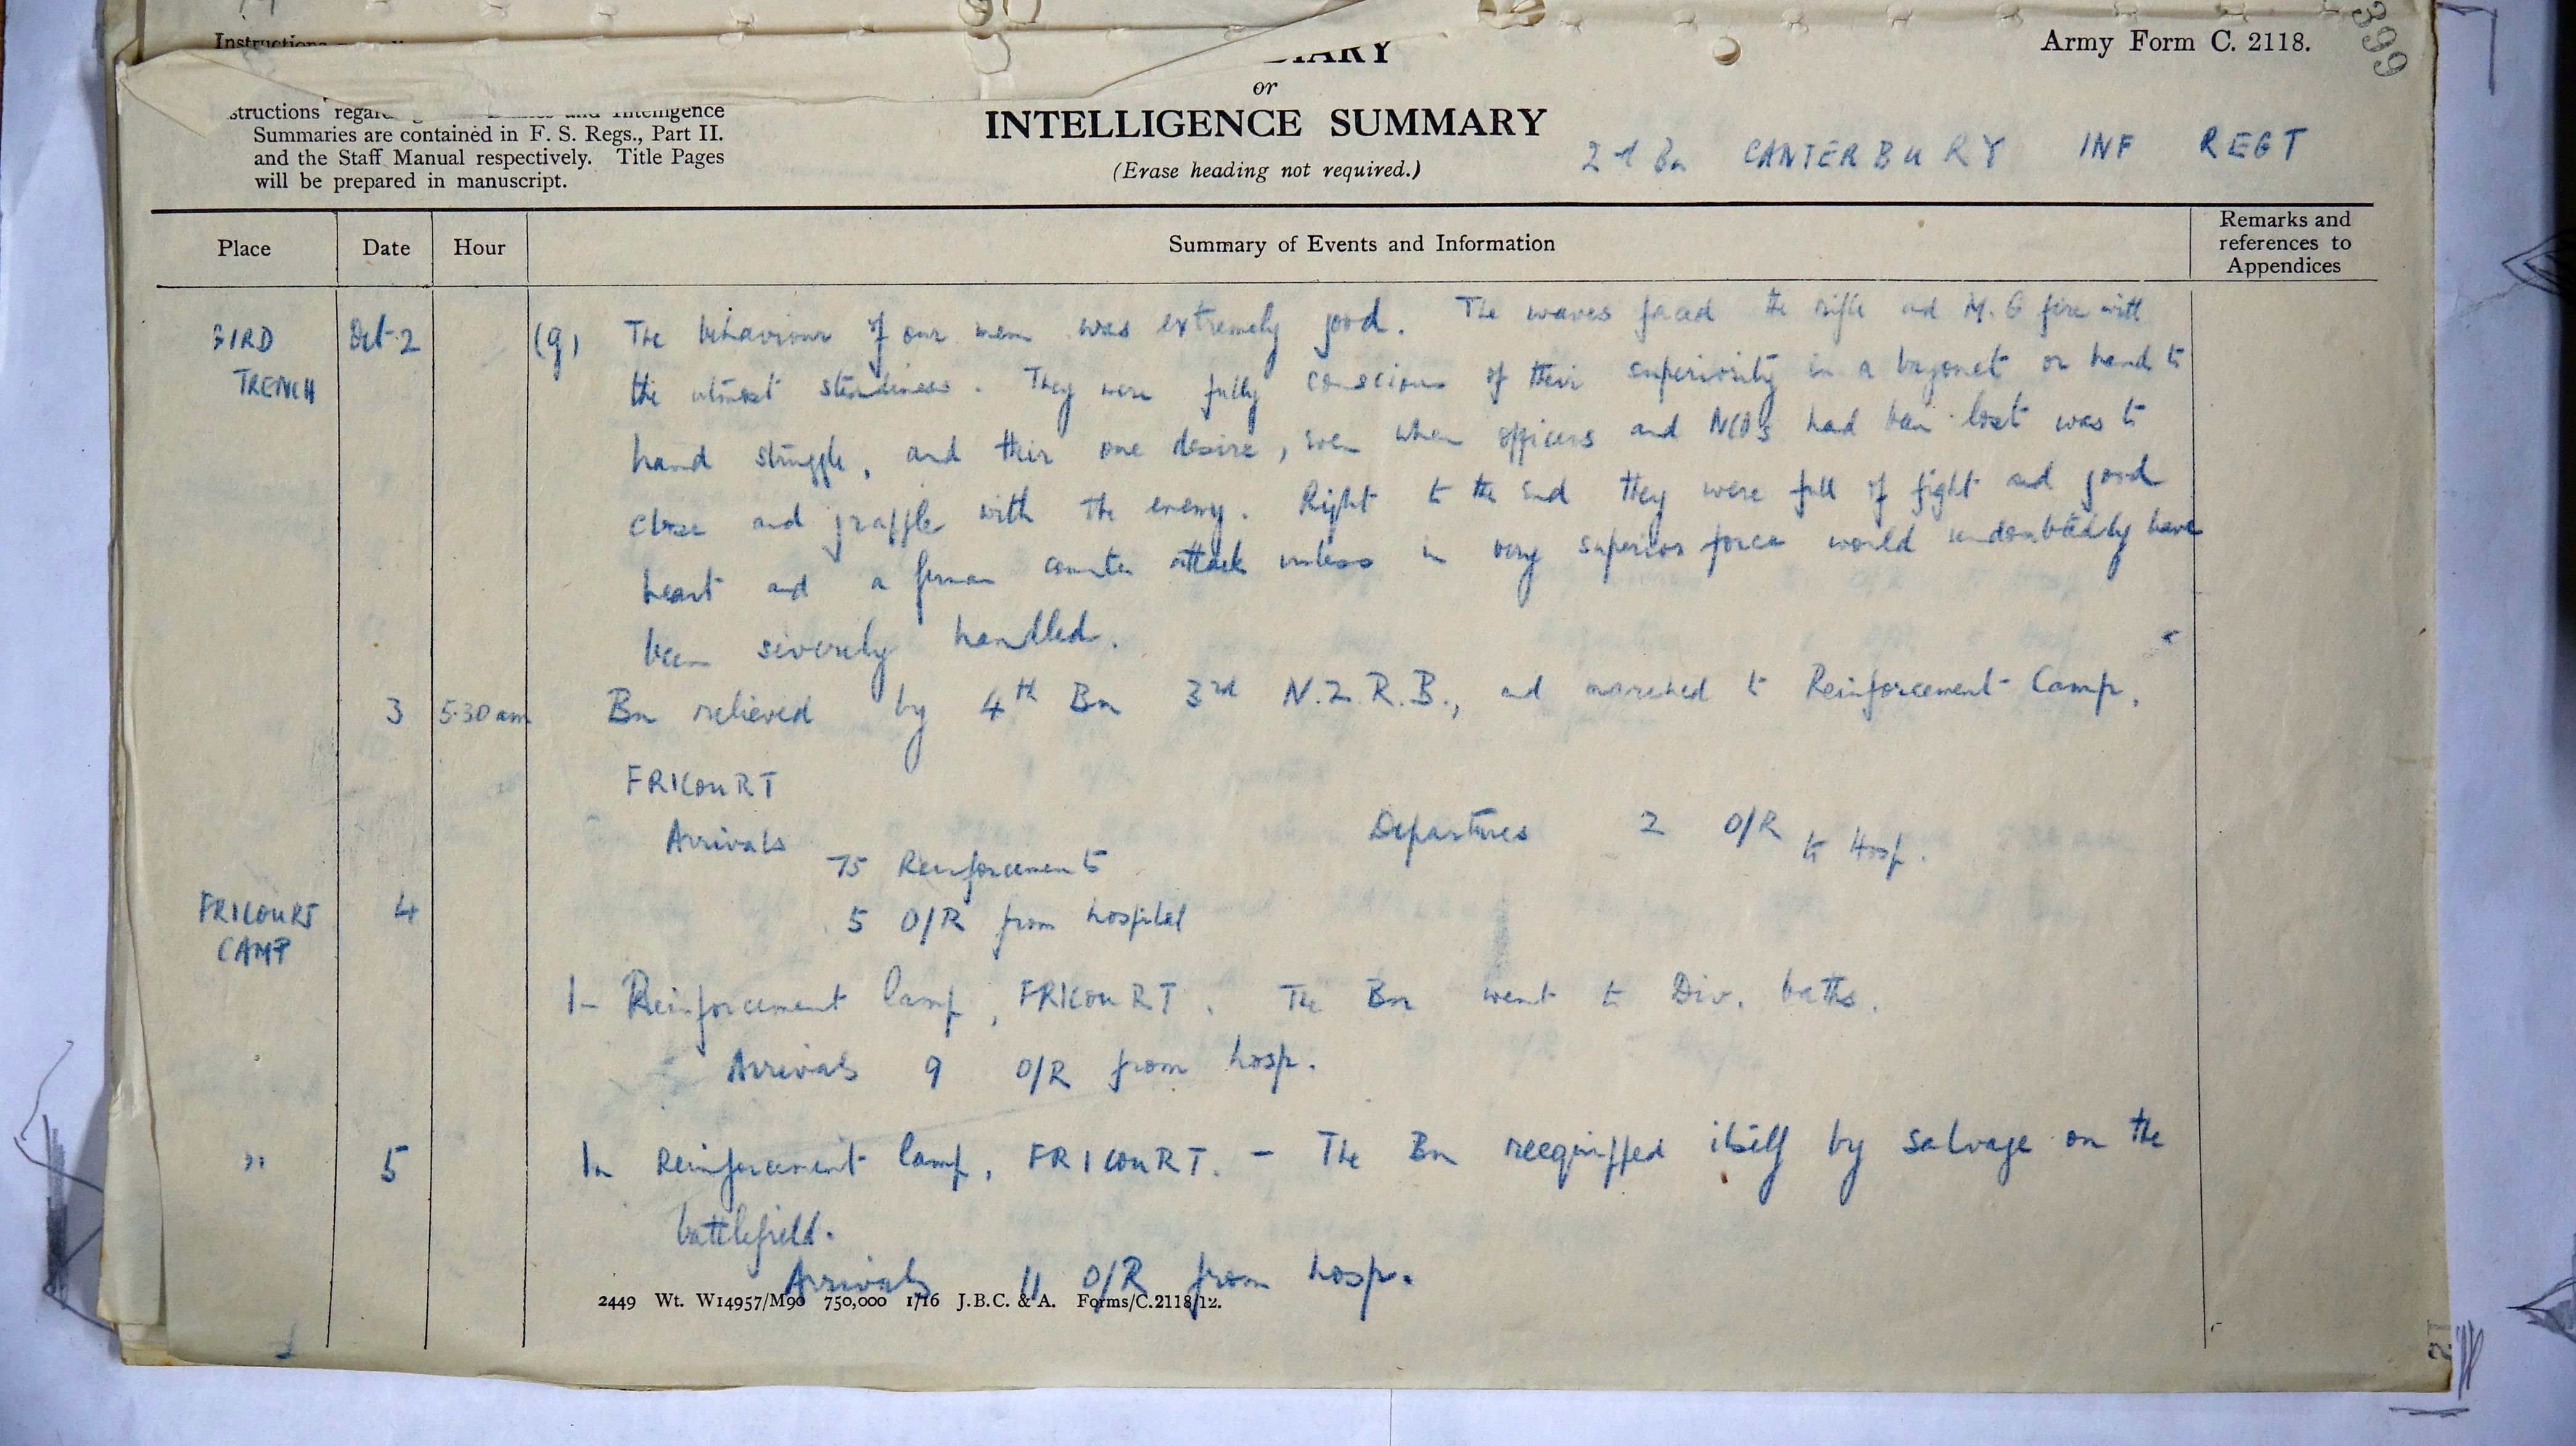 Army Form C. 2118.
399
Instructions
DIARY
or
INTELLIGENCE SUMMARY
(Erase heading not required.)
structions regarding Intelligence
Summaries are contained in F. S. Regs., Part II.
and the Staff Manual respectively. Title Pages
will be prepared in manuscript.
2nd Bn CANTERBURY INF REGT
Place Date Hour Summary of Events and Information Remarks and references to Appendices
BIRD TRENCH Oct 2 (g) The behaviour of our men was extremely good. The waves faced the rifle and M.G fire with
the utmost steadiness. They were fully conscious of their superiority in a bayonet or hand to
hand struggle, and their one desire, even when officers and NCOs had been lost was to
close and grapple with the enemy. Right to the end they were full of fight and good
heart and a german counter attack unless in very superior force would undoubtedly have
been severely handled.
3 5.30 am Bn relieved by 4th Bn 3rd N.Z.R.B., and marched to Reinforcement Camp.
FRICOURT
Arrivals Departures 2 O/R to Hosp.
75 Reinforcements
5 O/R from hospital
FRICOURT CAMP 4
In Reinforcement Camp, FRICOURT. The Bn went to Div. baths.
Arrivals 9 O/R from hosp.
" 5 In Reinforcement Camp, FRICOURT. - The Bn reequipped itself by salvage on the
battlefield.
Arrivals 11 O/R from hosp.
2449 Wt. W14957/M90 750,000 1/16 J.B.C. & A. Forms/C.2118/12.